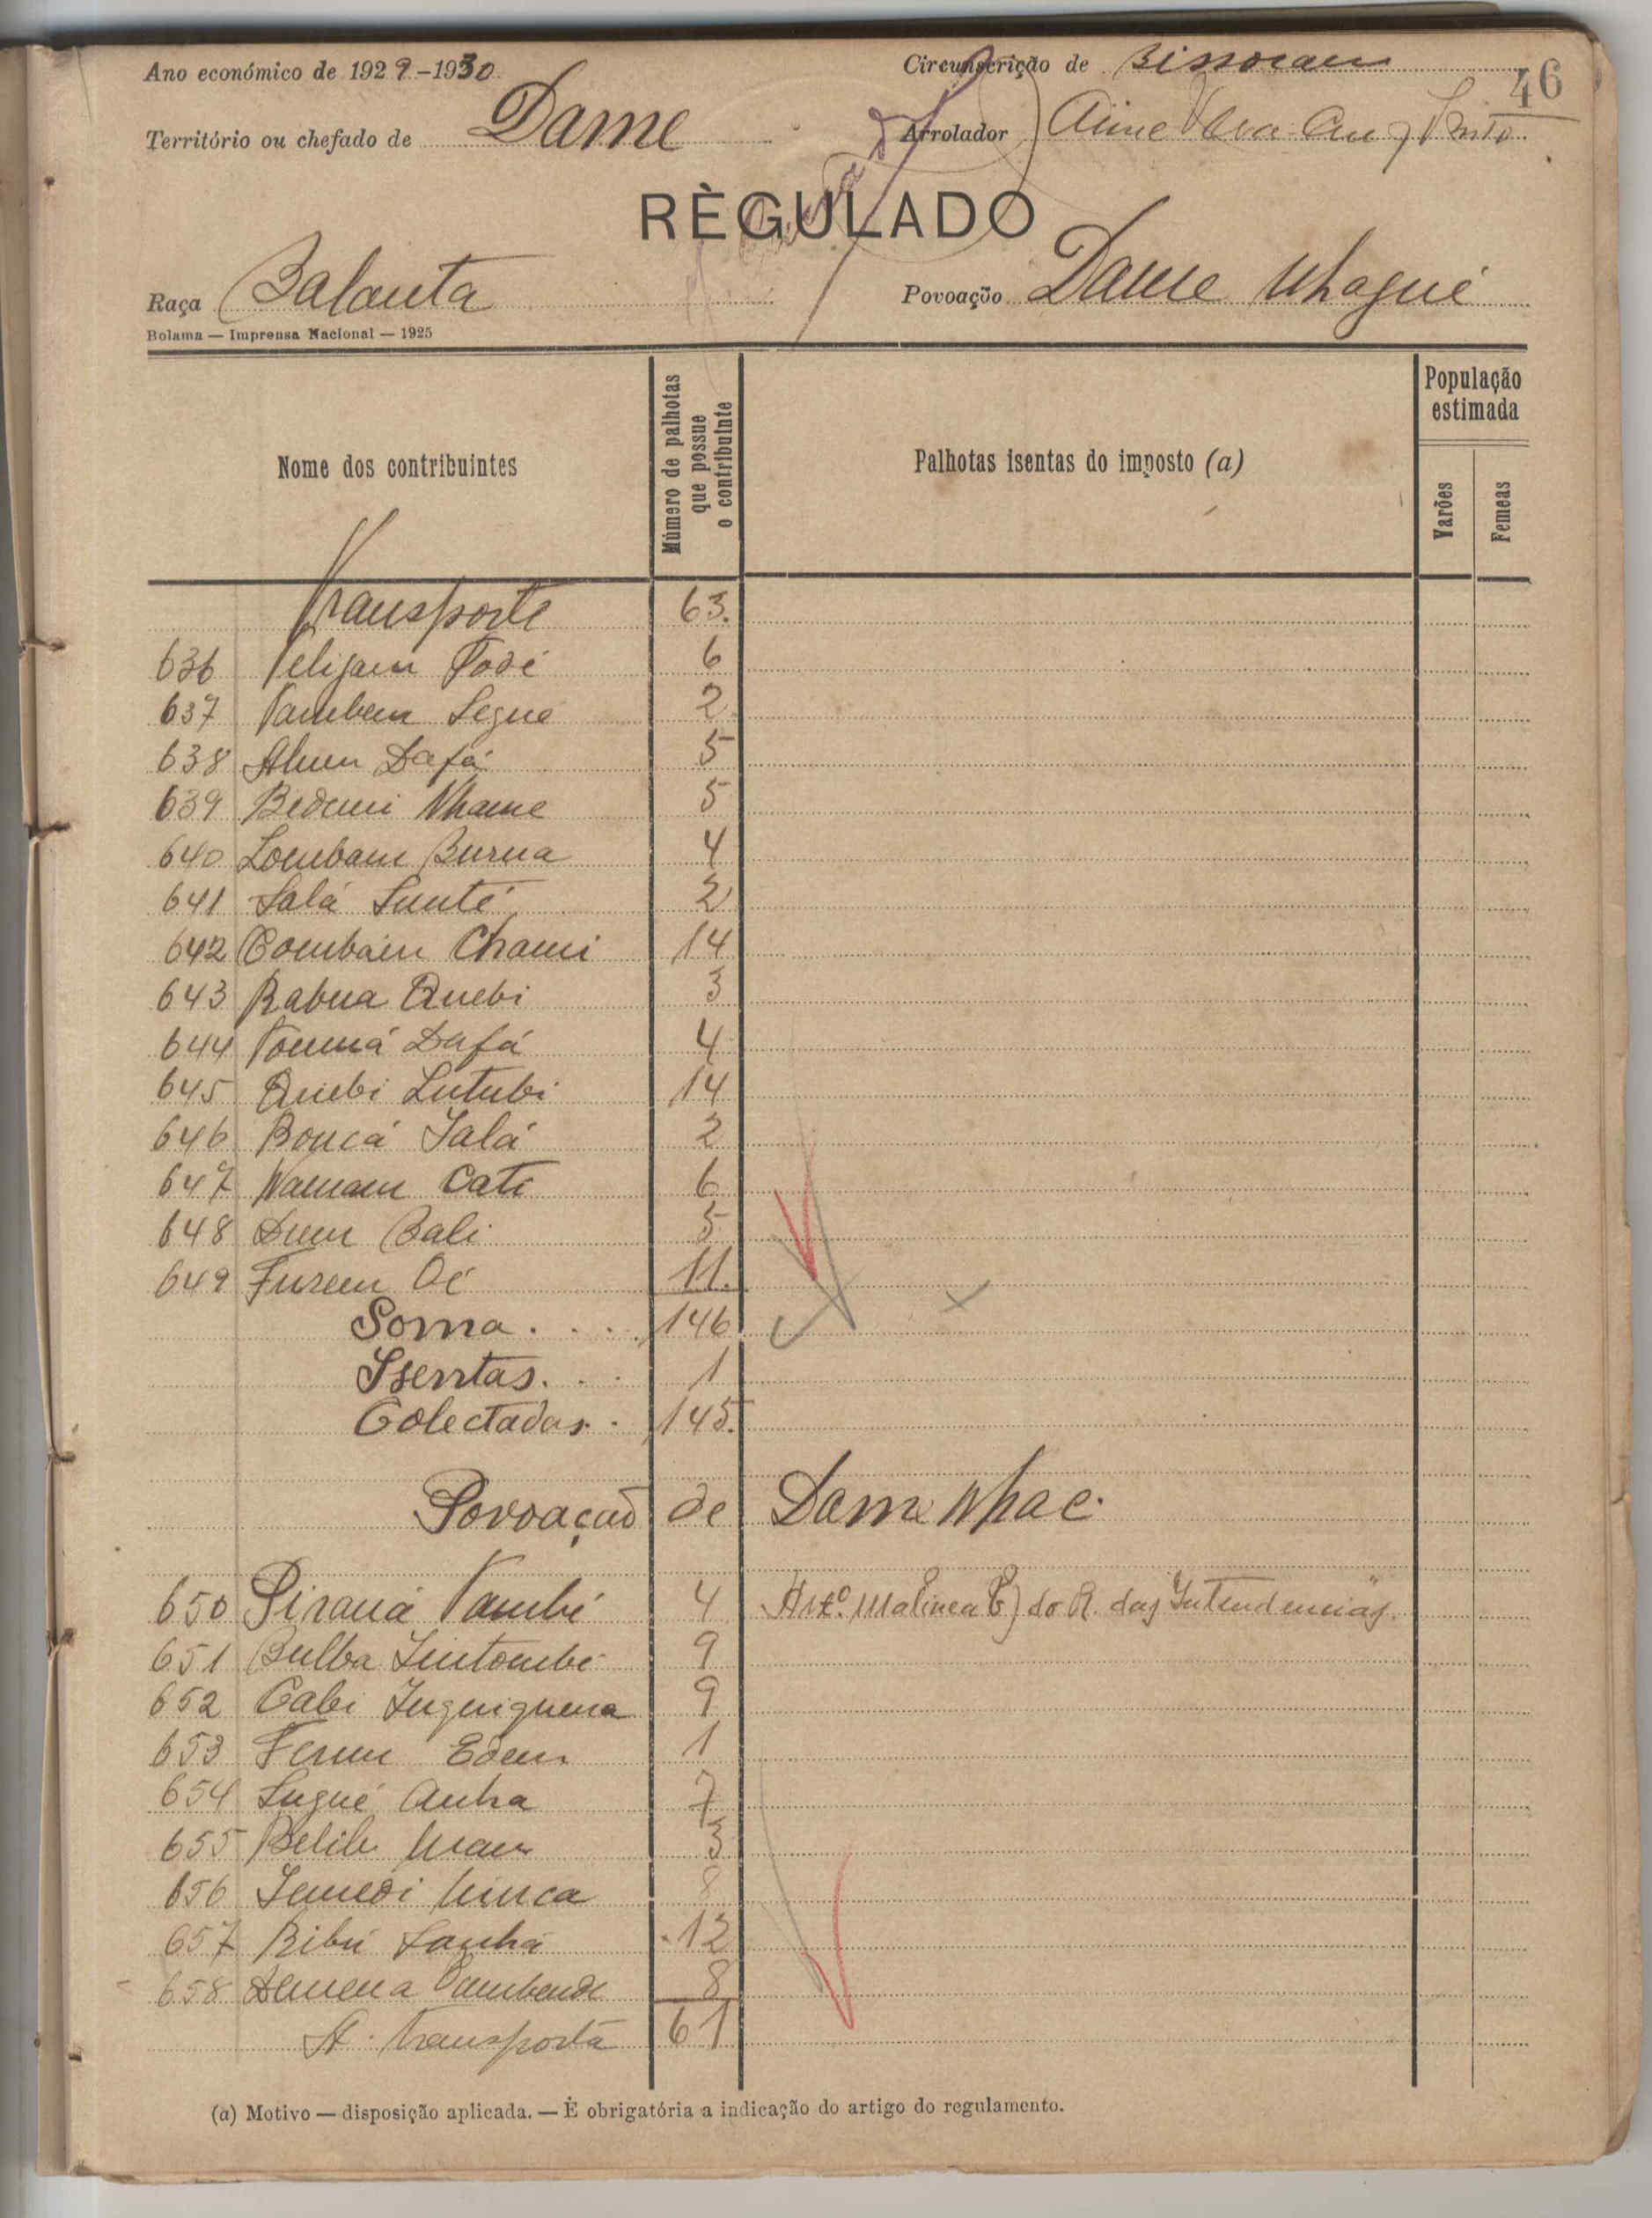 Ano económico de 1929-1930
Circunscrição de Bissoram
46
Território ou chefado de Dame
Arrolador
RÈGULADO
Raça Balanta
Povoação Dame Nhagué
Bolama — Imprensa Nacional — 1925
Nome dos contribuintes
Número de palhotas que possue o contribuinte
Palhotas isentas do imposto (a)
População estimada
Varões
Femeas
Transporte 63.
636 Telijam Fodé 6
637 Tambem Segue 2
638 Alum Dafá 5
639 Bedumi Nhame 5
640 Loumbam Burna 4
641 Salá Sunté 2
642 Combain Chami 14
643 Rabua Quebi 3
644 Toumá Dafá 4
645 Quebi Lutubi 14
646 Boucá Jalá 2
647 Wamam Cati 6
648 Dum Bali 5
649 Furem Oé 11.
Soma . . . . 146
Isentas. . . 1
Colectadas . 145.
Povoação de Dame Nhac.
650 Piraná També 4 Artº. do R. das Intendencias.
651 Bulba 9
652 Cabi 9
653 Ferum Edem 1
654 Sugué Anha 7
655 Belile 3
656 8
657 Bibú Sanhá 12
658 8
A Transportá 61
(a) Motivo — disposição aplicada. — É obrigatória a indicação do artigo do regulamento.